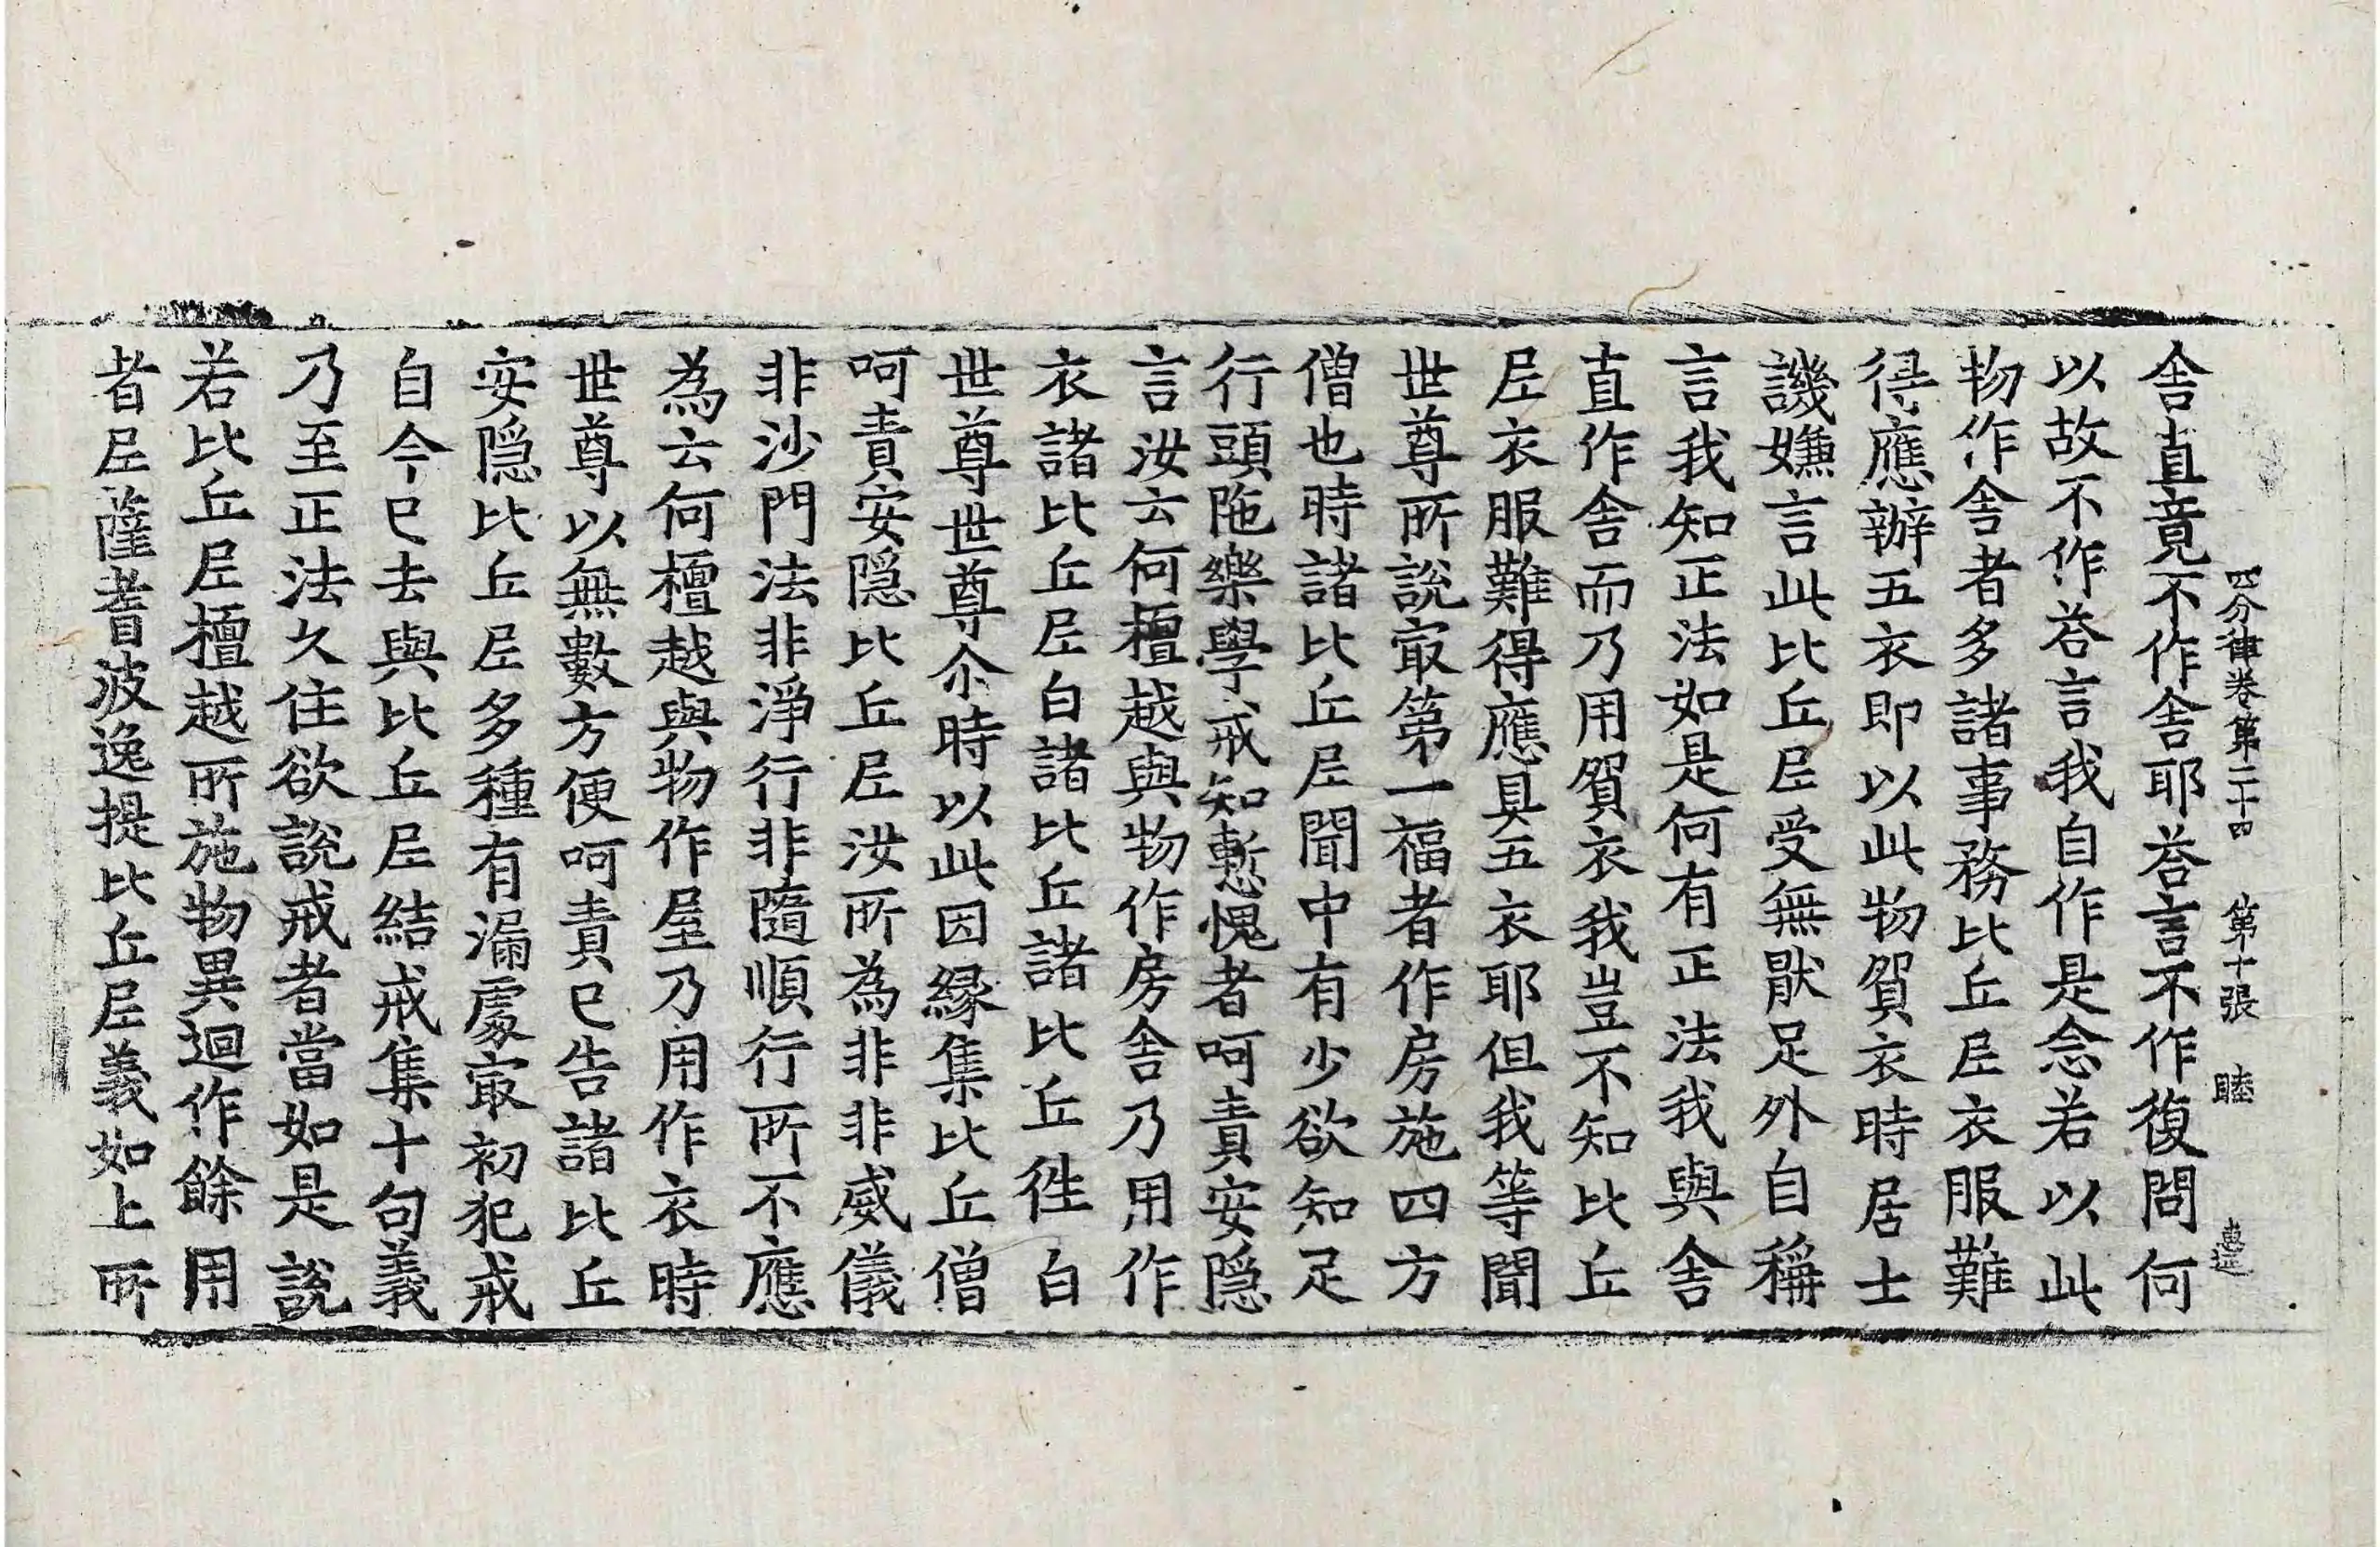 四分律卷第二十四 第十張 睦
舍直竟不作舍耶荅言不作復問何
以故不作荅言我自作是念若以此
物作舍者多諸事務比丘尼衣服難
得應辦五衣即以此物貿衣時居士
譏嫌言此比丘尼受無猒足外自稱
言我知正法如是何有正法我與舍
直作舍而乃用貿衣我豈不知比丘
尼衣服難得應具五衣耶但我等聞
世尊所說㝡第一福者作房施四方
僧也時諸比丘尼聞中有少欲知足
行頭陁樂學戒知慙愧者呵責安隱
言汝云何檀越與物作房舍乃用作
衣諸比丘尼白諸比丘諸比丘徃白
世尊世尊尒時以此因緣集比丘僧
呵責安隱比丘尼汝所為非非威儀
非沙門法非淨行非隨順行所不應
為云何檀越與物作屋乃用作衣時
世尊以無數方便呵責已告諸比丘
安隱比丘尼多種有漏處㝡初犯戒
自今已去與比丘尼結戒集十句義
乃至正法久住欲說戒者當如是說
若比丘尼檀越所施物異迴作餘用
者尼薩耆波逸提比丘尼義如上所